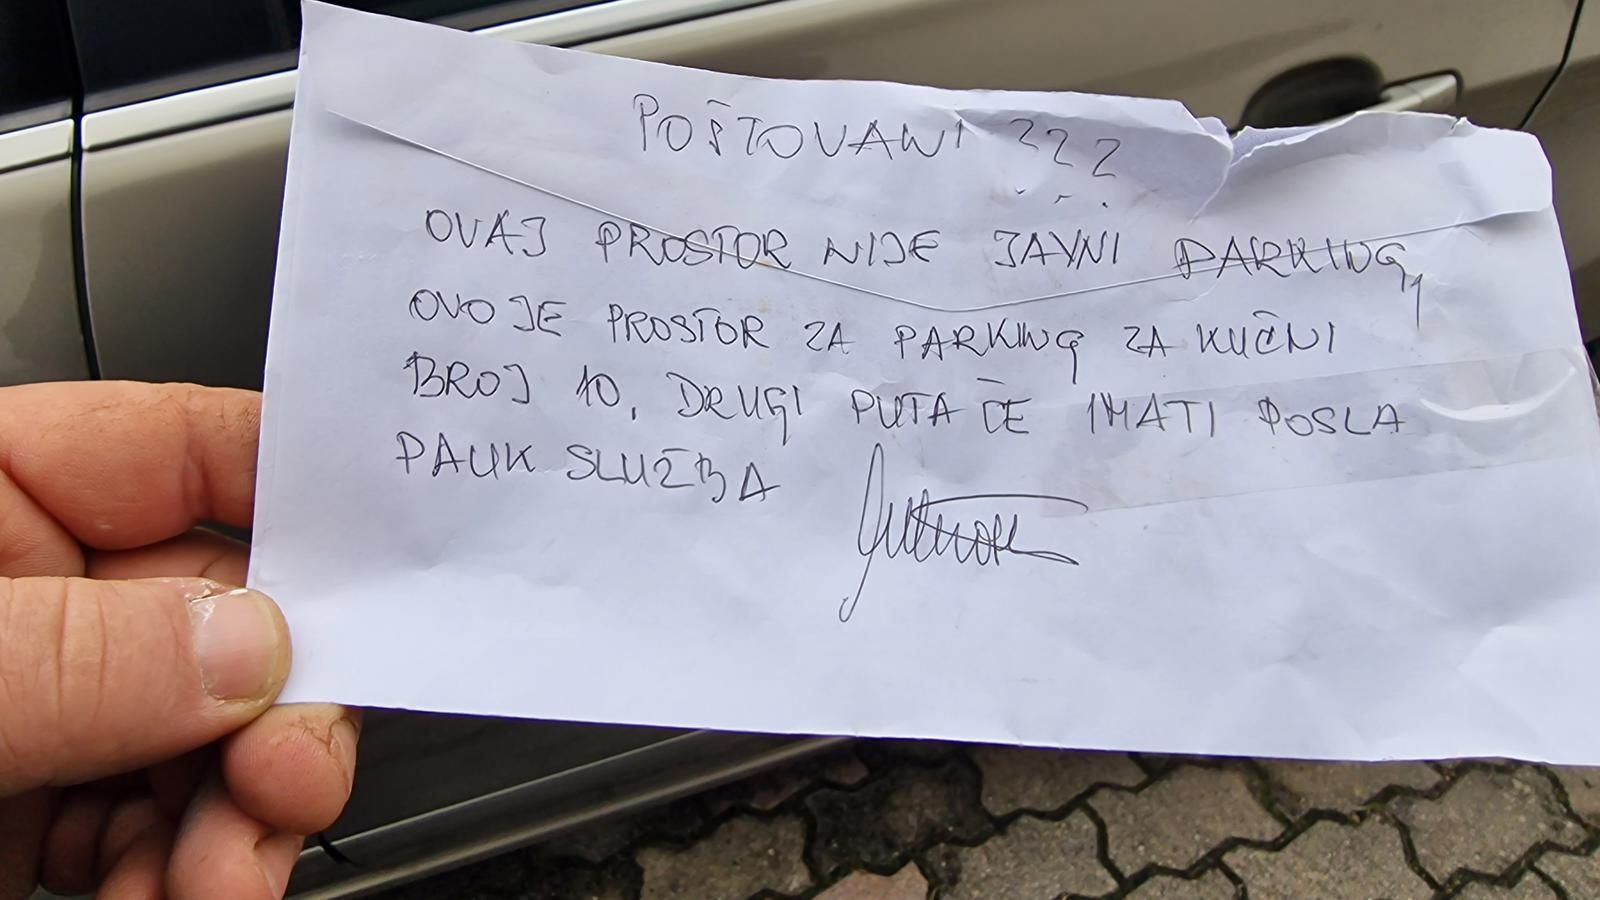 POŠTOVANI ???
OVAJ PROSTOR NIJE JAVNI PARKING,
OVO JE PROSTOR ZA PARKING ZA KUČNI
BROJ 10, DRUGI PUTA ČE IMATI POSLA
PAUK SLUŽBA